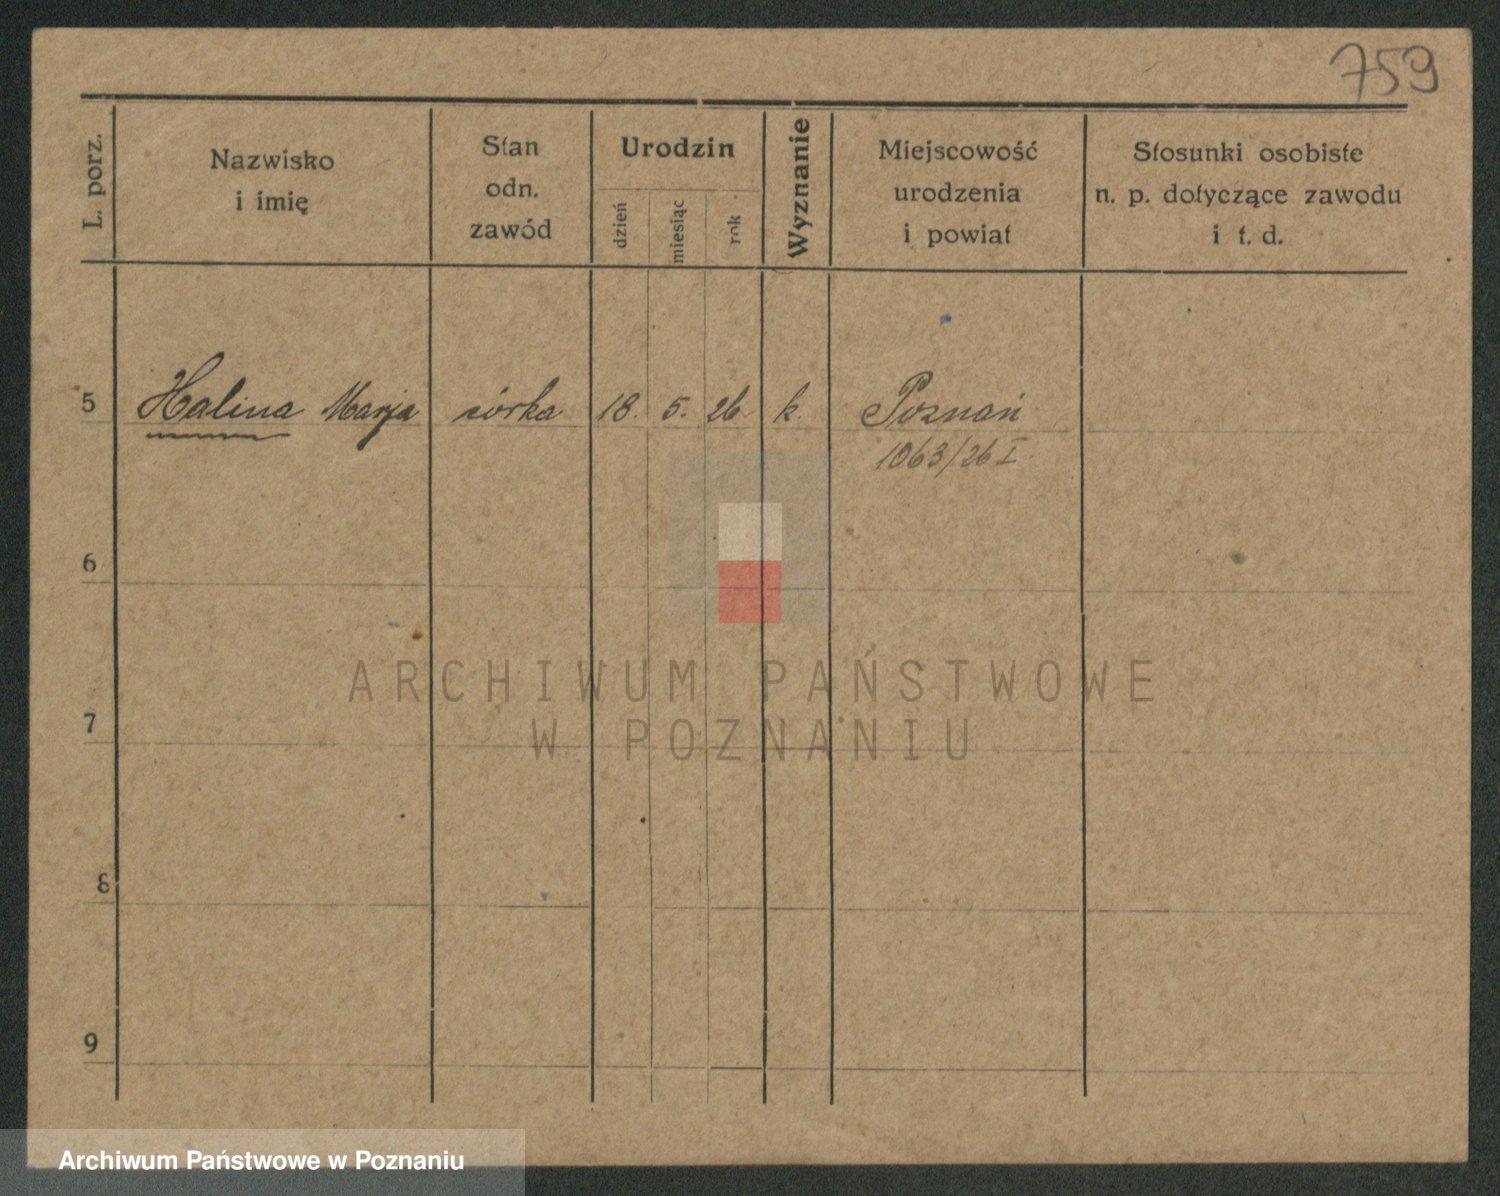 759
L. porz.
Nazwisko
i imię
Stan
odn.
zawód
Urodzin
dzień
miesiąc
rok
Wyznanie
Miejscowość
urodzenia
i powiat
Stosunki osobiste
n. p. dotyczące zawodu
i t. d.
5 Halina Marja córka 18. 5. 26 k. Poznań
1063/26 I
6
7
8
9
ARCHIWUM PAŃSTWOWE
W POZNANIU
Archiwum Państwowe w Poznaniu